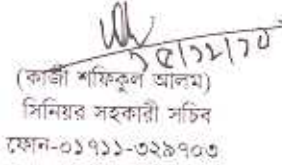 ১৫/১২/১৩
(কাজী শফিকুল আলম)
সিনিয়র সহকারী সচিব
ফোন-০১৭১১-৩২৯৭০৩